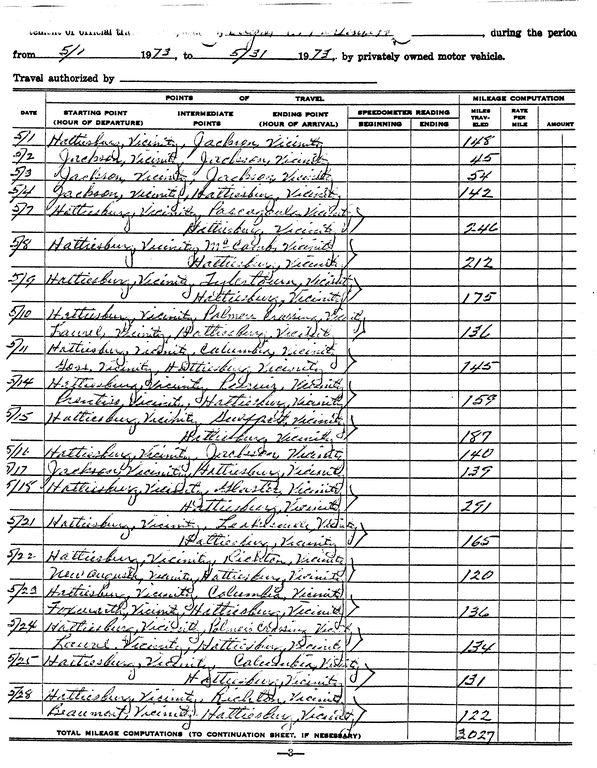 , during the period
from 5/1 1973, to 5/31 1973, by privately owned motor vehicle.
Travel authorized by
POINTS OF TRAVEL MILEAGE COMPUTATION
DATE STARTING POINT (HOUR OF DEPARTURE) INTERMEDIATE POINTS ENDING POINT (HOUR OF ARRIVAL) SPEEDOMETER READING BEGINNING ENDING MILES TRAVELED RATE PER MILE AMOUNT
5/1 Hattiesburg, Vicinity, Jackson, Vicinity 148
5/2 Jackson, Vicinity, Jackson, Vicinity 45
5/3 Jackson, Vicinity, Jackson, Vicinity 54
5/4 Jackson, Vicinity, Hattiesburg, Vicinity 142
5/7 Hattiesburg, Vicinity, Pascagoula, Vicinity
Hattiesburg, Vicinity 246
5/8 Hattiesburg, Vicinity, McComb, Vicinity
Hattiesburg, Vicinity 212
5/9 Hattiesburg, Vicinity, Tylertown, Vicinity
Hattiesburg, Vicinity 175
5/10 Hattiesburg, Vicinity, Palmers Crossing, Vicinity
Laurel, Vicinity, Hattiesburg, Vicinity 136
5/11 Hattiesburg, Vicinity, Columbia, Vicinity
Goss, Vicinity, Hattiesburg, Vicinity 145
5/14 Hattiesburg, Vicinity, Vicinity
Prentiss, Vicinity, Hattiesburg, Vicinity 159
5/15 Hattiesburg, Vicinity, Gulfport, Vicinity
Hattiesburg, Vicinity 187
5/16 Hattiesburg, Vicinity, Jackson, Vicinity 140
5/17 Jackson, Vicinity, Hattiesburg, Vicinity 139
5/18 Hattiesburg, Vicinity, Vicinity
Hattiesburg, Vicinity 291
5/21 Hattiesburg, Vicinity, Leakesville, Vicinity
Hattiesburg, Vicinity 165
5/22 Hattiesburg, Vicinity, Richton, Vicinity
New Augusta, Vicinity, Hattiesburg, Vicinity 120
5/23 Hattiesburg, Vicinity, Columbia, Vicinity
Foxworth, Vicinity, Hattiesburg, Vicinity 136
5/24 Hattiesburg, Vicinity, Palmers Crossing, Vicinity
Laurel, Vicinity, Hattiesburg, Vicinity 134
5/25 Hattiesburg, Vicinity, Columbia, Vicinity
Hattiesburg, Vicinity 131
5/28 Hattiesburg, Vicinity, Richton, Vicinity
Beaumont, Vicinity, Hattiesburg, Vicinity 122
TOTAL MILEAGE COMPUTATIONS (TO CONTINUATION SHEET, IF NESESSARY) 3027
—3—